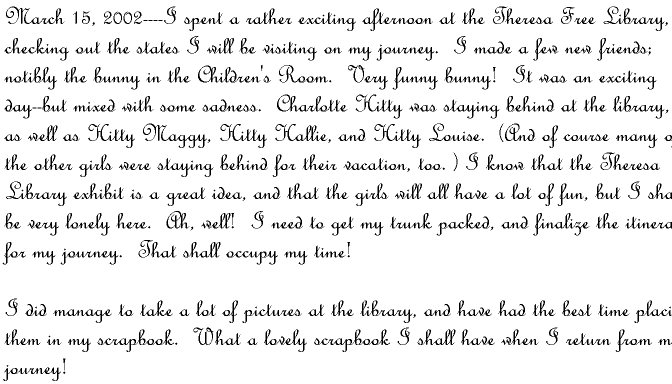 March 15, 2002----I spent a rather exciting afternoon at the Theresa Free Library,
checking out the states I will be visiting on my journey. I made a few new friends;
notibly the bunny in the Children's Room. Very funny bunny! It was an exciting
day--but mixed with some sadness. Charlotte Kitty was staying behind at the library,
as well as Kitty Maggy, Kitty Hallie, and Kitty Louise. (And of course many o
the other girls were staying behind for their vacation, too. ) I know that the Theresa
Library exhibit is a great idea, and that the girls will all have a lot of fun, but I sha
be very lonely here. Ah, well! I need to get my trunk packed, and finalize the itinera
for my journey. That shall occupy my time!
I did manage to take a lot of pictures at the library, and have had the best time placi
them in my scrapbook. What a lovely scrapbook I shall have when I return from m
journey!